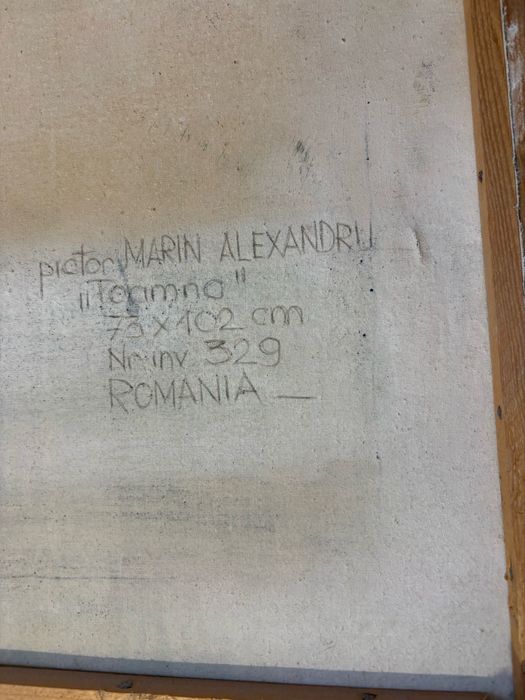 pictor MARIN ALEXANDRU
„Toamna"
73 x 102 cm
Nr inv 329
ROMANIA —